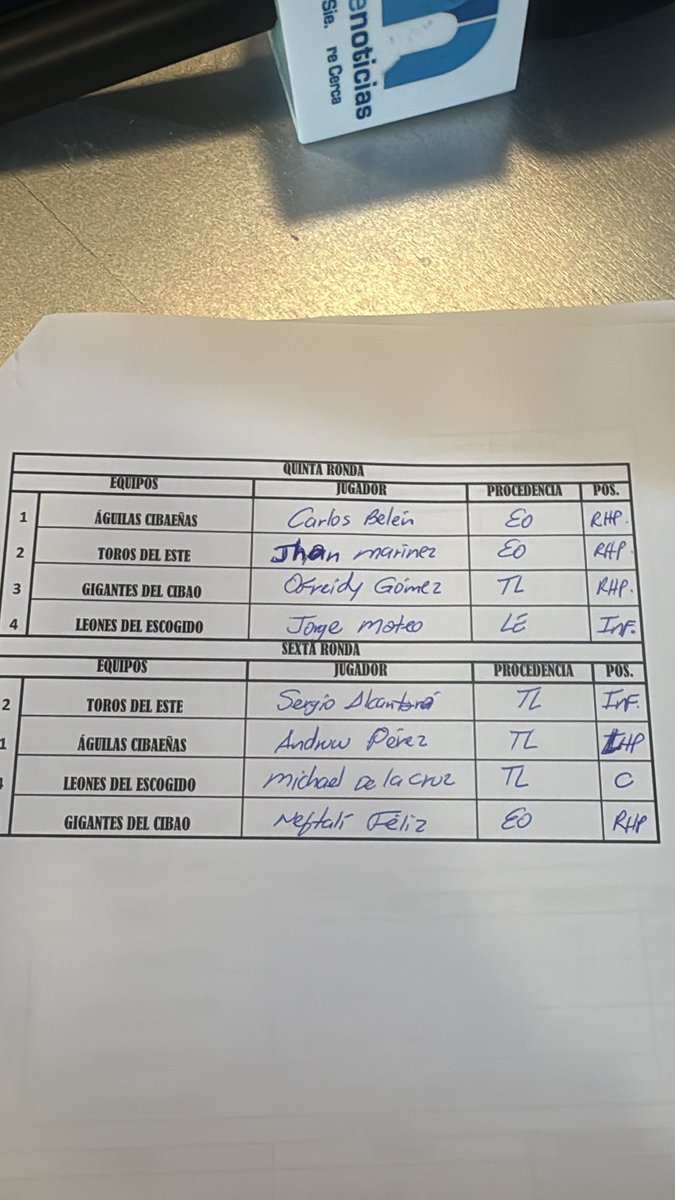 enoticias
Sie. re Cerca
QUINTA RONDA
EQUIPOS JUGADOR PROCEDENCIA POS.
1 ÁGUILAS CIBAEÑAS Carlos Belén EO RHP.
2 TOROS DEL ESTE Jhan marinez EO RHP.
3 GIGANTES DEL CIBAO Ofreidy Gómez TL RHP.
4 LEONES DEL ESCOGIDO Jorge mateo LE Inf.
SEXTA RONDA
EQUIPOS JUGADOR PROCEDENCIA POS.
2 TOROS DEL ESTE Sergio Alcantará TL Inf.
1 ÁGUILAS CIBAEÑAS Andruw Pérez TL LHP
LEONES DEL ESCOGIDO michael De la cruz TL C
GIGANTES DEL CIBAO Neftalí Féliz EO RHP